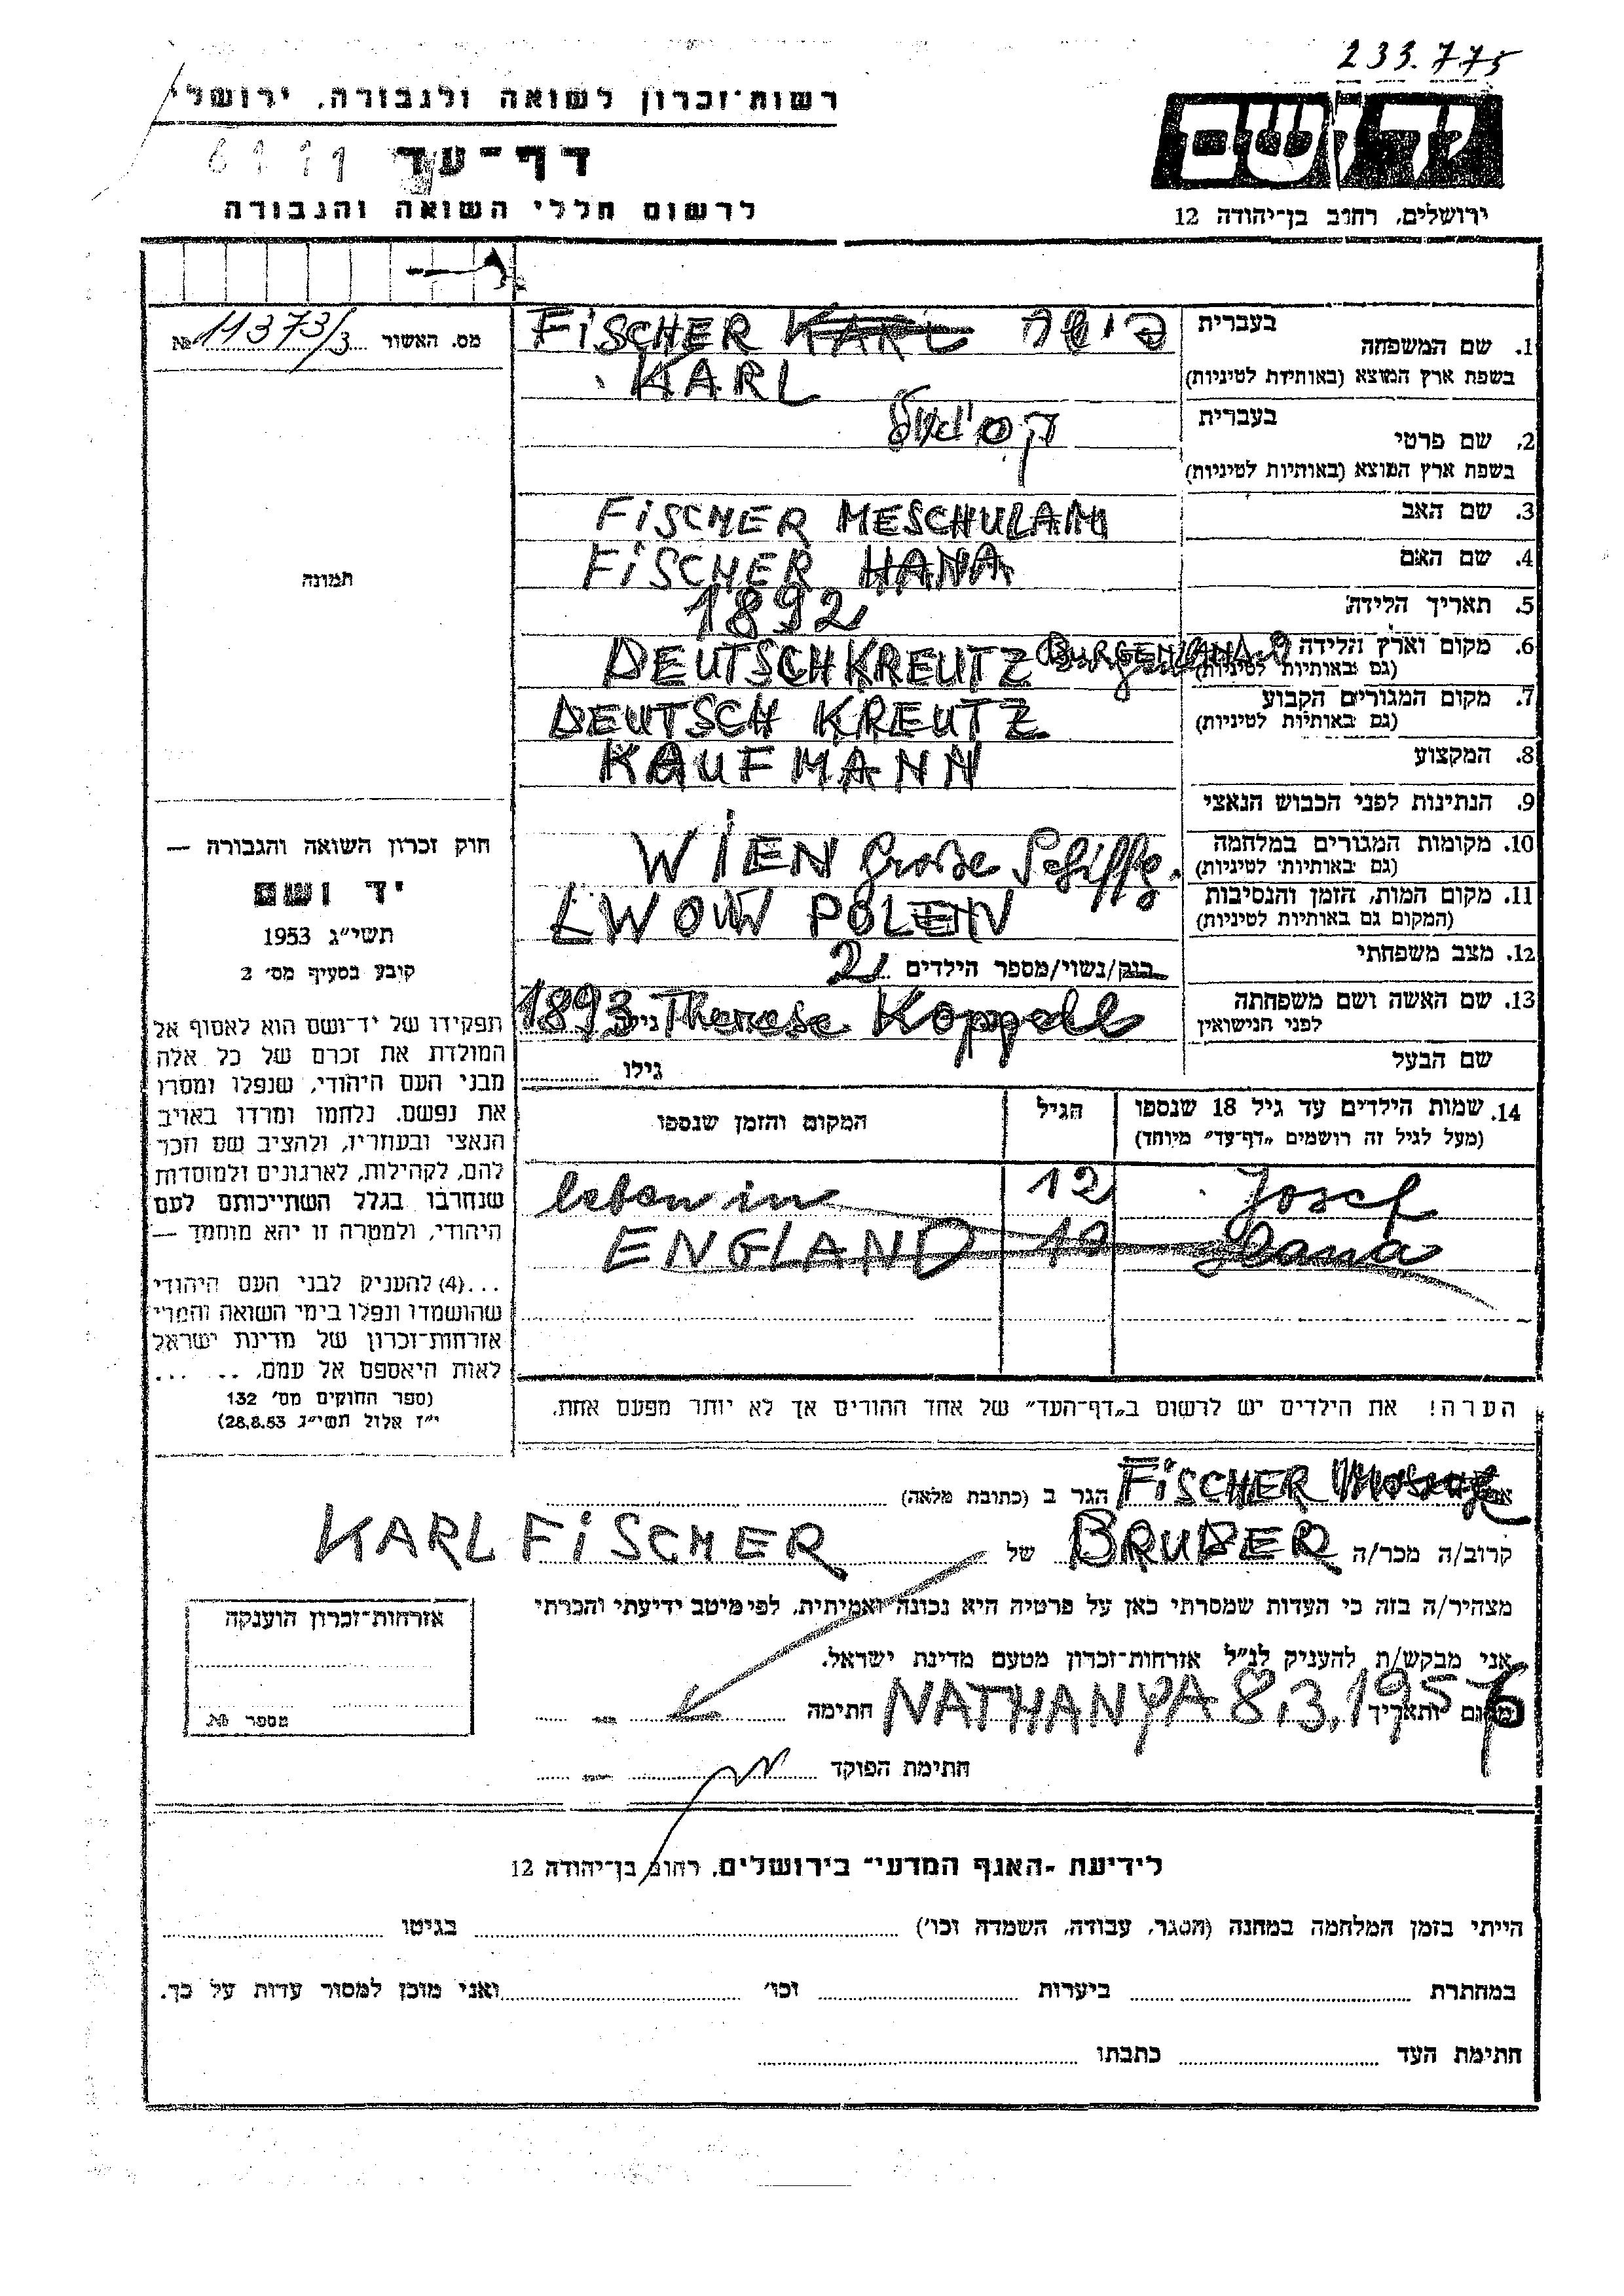 233.775
רשות־זכרון לשואה ולגבורה, ירושלי
דף־עד
לרשום חללי השואה והגבורה
יד ושם
ירושלים, רחוב בן־יהודה 12
מס. האשור 11373/3 №
תמונה
חוק זכרון השואה והגבורה —
יד ושם
תשי״ג 1953
קובע בסעיף מס׳ 2
תפקידו של יד־ושם הוא לאסוף אל
המולדת את זכרם של כל אלה
מבני העם היהודי, שנפלו ומסרו
את נפשם, נלחמו ומרדו באויב
הנאצי ובעוזריו, ולהציב שם וזכר
להם, לקהילות, לארגונים ולמוסדות
שנחרבו בגלל השתייכותם לעם
היהודי, ולמטרה זו יהא מוסמך —
...(4) להעניק לבני העם היהודי
שהושמדו ונפלו בימי השואה והמרי
אזרחות־זכרון של מדינת ישראל
לאות היאספם אל עמם. ... ...
(ספר החוקים מס׳ 132
י״ז אלול תשי״ג 28.8.53)
1. שם המשפחה בעברית פישר
בשפת ארץ המוצא (באותיות לטיניות) FiSCHER KARL
KARL
2. שם פרטי בעברית
בשפת ארץ המוצא (באותיות לטיניות)
3. שם האב FiSCHER MESCHULAM
4. שם האם FiSCHER HANA
5. תאריך הלידה 1892
6. מקום וארץ הלידה DEUTSCHKREUTZ BURGENLAND
(גם באותיות לטיניות)
7. מקום המגורים הקבוע DEUTSCH KREUTZ
(גם באותיות לטיניות)
8. המקצוע KAUFMANN
9. הנתינות לפני הכבוש הנאצי
10. מקומות המגורים במלחמה WIEN Große Schiffg.
(גם באותיות לטיניות)
11. מקום המות, הזמן והנסיבות LWOW POLEN
(המקום גם באותיות לטיניות)
12. מצב משפחתי
רווק/נשוי/מספר הילדים 2
13. שם האשה ושם משפחתה Therese Koppel גילה 1893
לפני הנישואין
שם הבעל גילו
14. שמות הילדים עד גיל 18 שנספו הגיל המקום והזמן שנספו
(מעל לגיל זה רושמים „דף־עד״ מיוחד)
Josef 12 leben in
ENGLAND
הערה! את הילדים יש לרשום ב„דף־העד״ של אחד ההורים אך לא יותר מפעם אחת.
אני FiSCHER הגר ב (כתובת מלאה)
קרוב/ה מכר/ה BRUDER של KARL FiSCHER
מצהיר/ה בזה כי העדות שמסרתי כאן על פרטיה היא נכונה ואמיתית, לפי מיטב ידיעתי והכרתי
אני מבקש/ת להעניק לנ״ל אזרחות־זכרון מטעם מדינת ישראל.
מקום ותאריך NATHANYA 8.3.1956 חתימה
חתימת הפוקד
אזרחות־זכרון הוענקה
מספר №
לידיעת „האגף המדעי״ בירושלים, רחוב בן־יהודה 12
הייתי בזמן המלחמה במחנה (הסגר, עבודה, השמדה וכו׳) בגיטו
במחתרת ביערות וכו׳ ואני מוכן למסור עדות על כך.
חתימת העד כתבתו